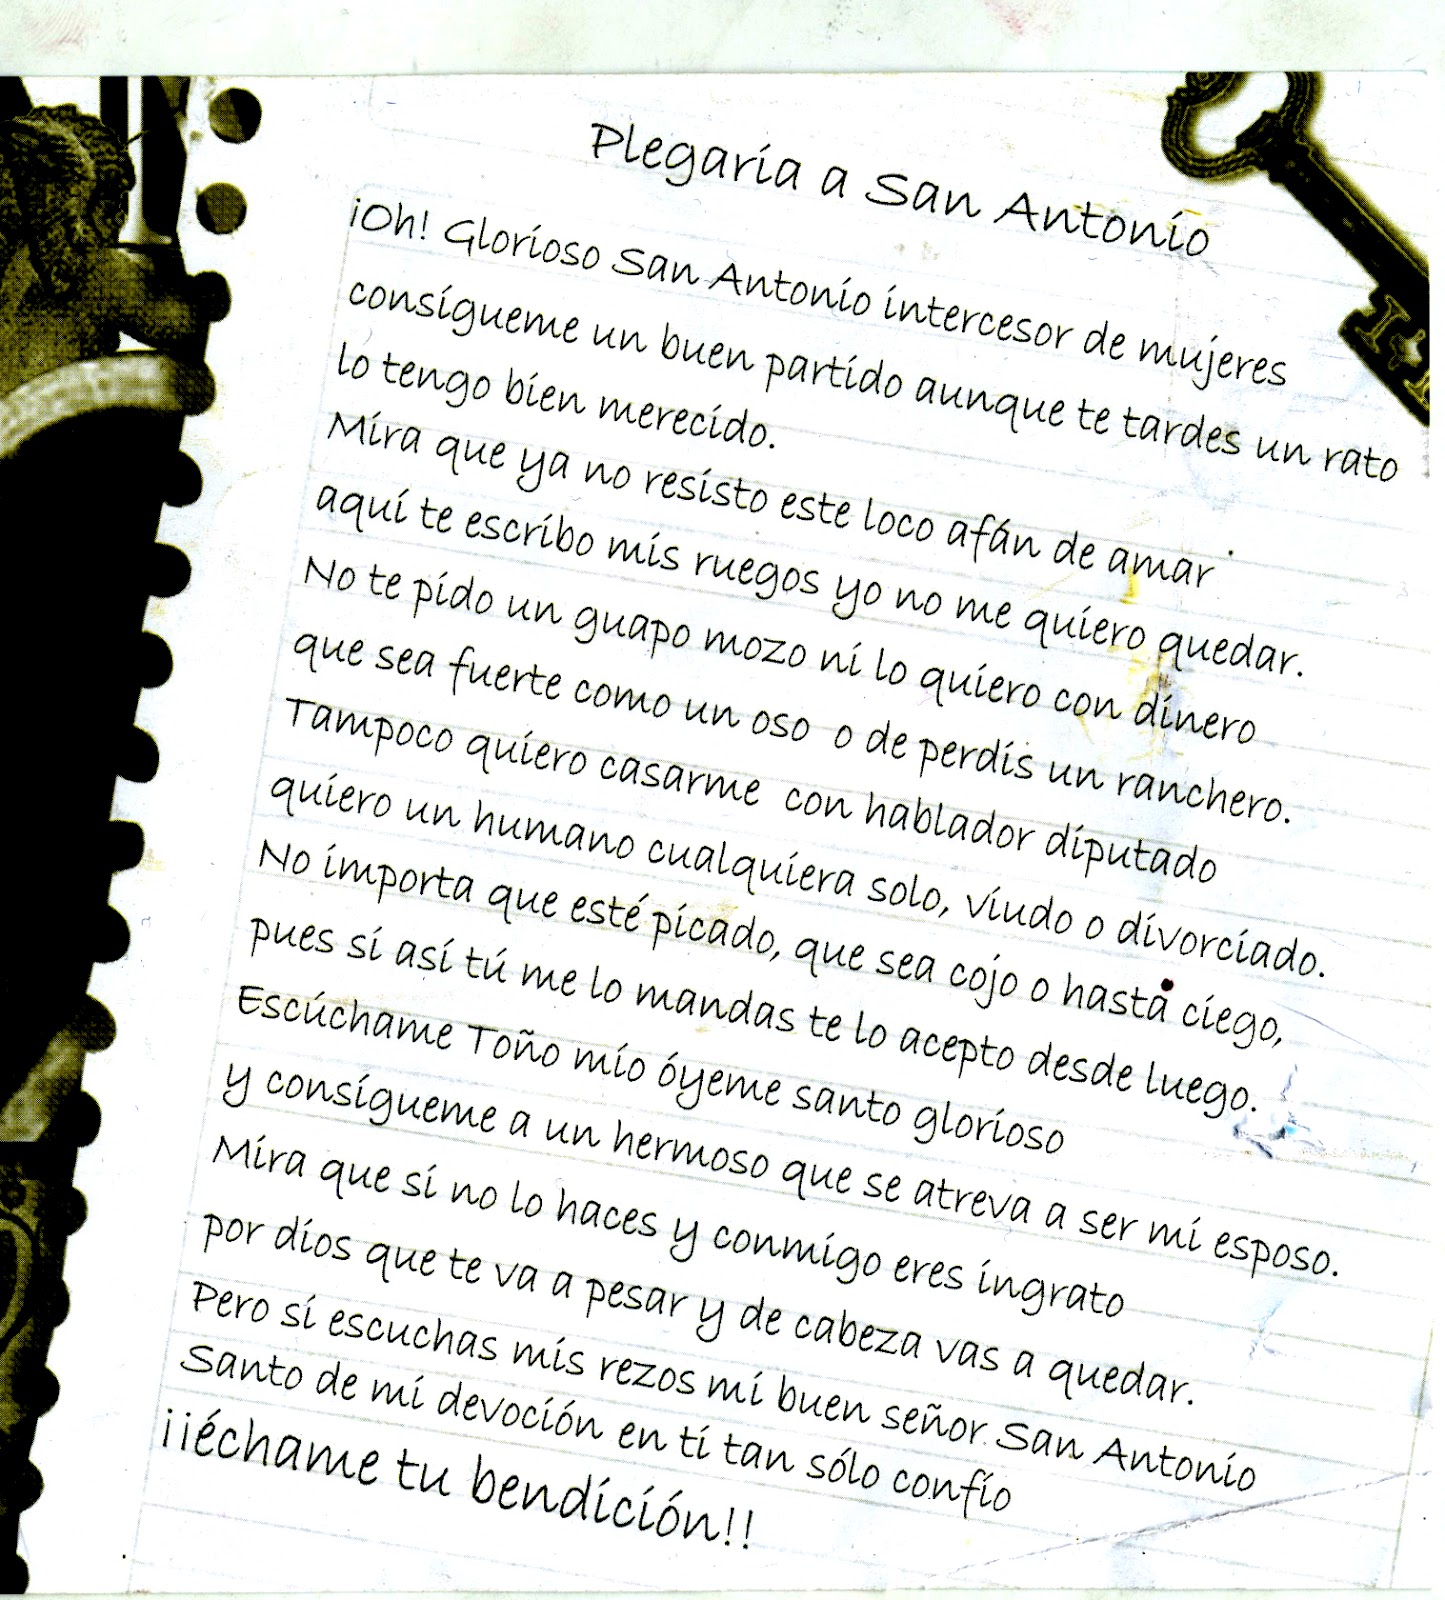 Plegaria a San Antonio
¡Oh! Glorioso San Antonio intercesor de mujeres
consígueme un buen partido aunque te tardes un rato
lo tengo bien merecido.
Mira que ya no resisto este loco afán de amar
aquí te escribo mis ruegos yo no me quiero quedar.
No te pido un guapo mozo ni lo quiero con dinero
que sea fuerte como un oso o de perdis un ranchero.
Tampoco quiero casarme con hablador diputado
quiero un humano cualquiera solo, viudo o divorciado.
No importa que esté picado, que sea cojo o hasta ciego,
pues si así tú me lo mandas te lo acepto desde luego.
Escúchame Toño mío óyeme santo glorioso
y consígueme a un hermoso que se atreva a ser mi esposo.
Mira que si no lo haces y conmigo eres ingrato
por dios que te va a pesar y de cabeza vas a quedar.
Pero si escuchas mis rezos mi buen señor San Antonio
Santo de mi devoción en ti tan sólo confío
¡¡échame tu bendición!!